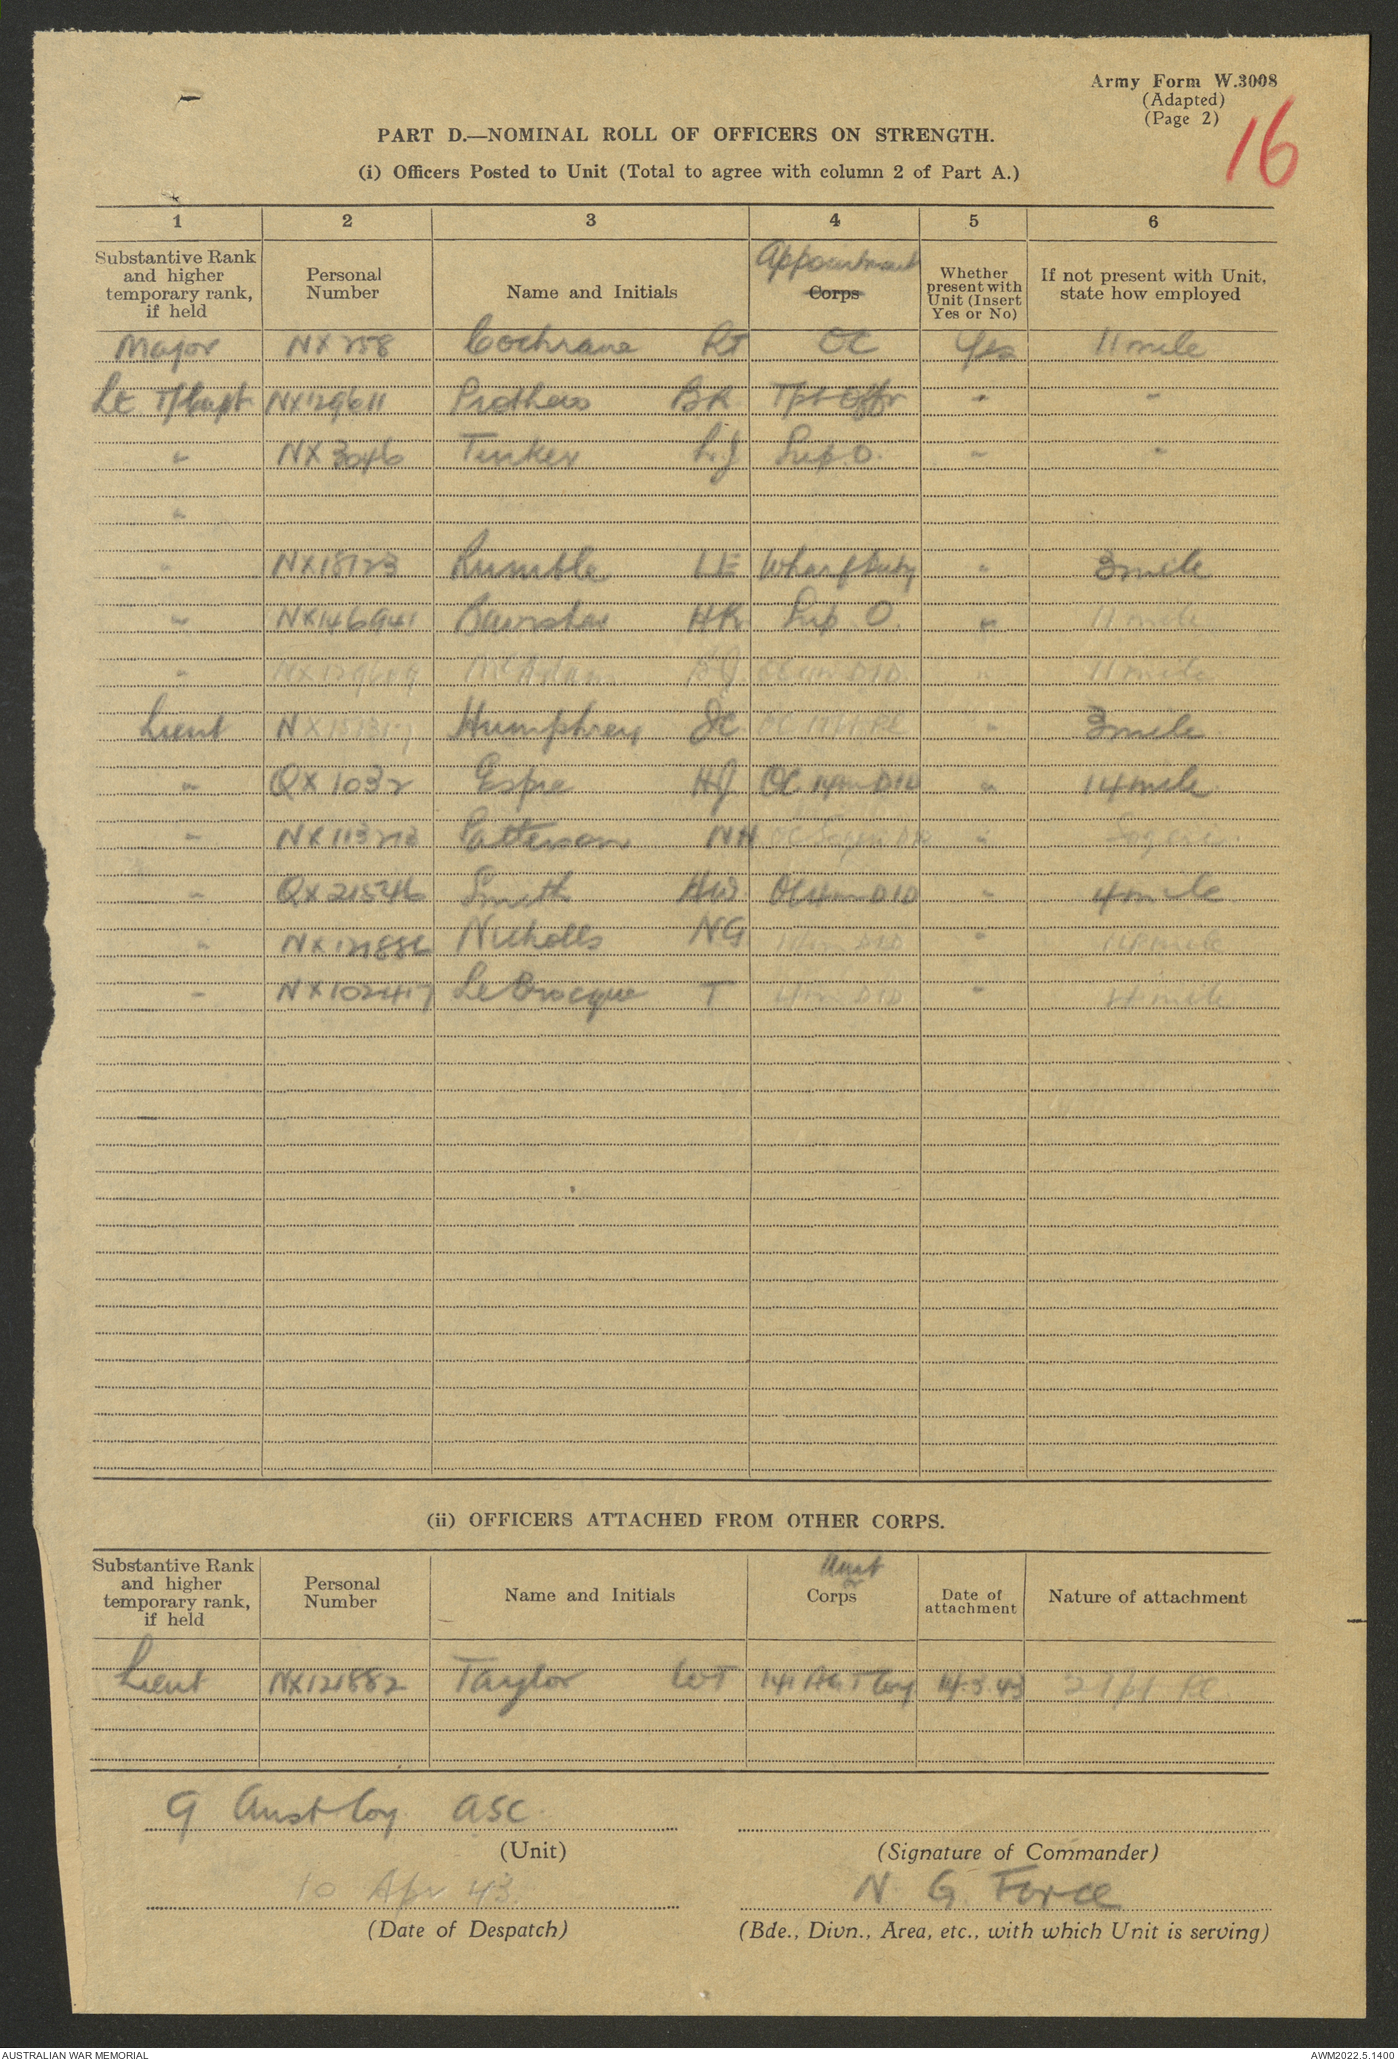 Army Form W.3008
(Adapted)
(Page 2)
16
PART D.—NOMINAL ROLL OF OFFICERS ON STRENGTH.
(i) Officers Posted to Unit (Total to agree with column 2 of Part A.)
1 2 3 4 5 6
Substantive Rank and higher temporary rank, if held
Personal Number
Name and Initials
Appointment Corps
Whether present with Unit (Insert Yes or No)
If not present with Unit, state how employed
Major NX258 Cochrane RJ OC Yes 11 mile
Lt T/Capt NX129611 Prothero BR Tpt Offr " "
" NX3046 Tinker L.J Sup. O. " "
"
" NX18723 Rumble LE Wharf Duty " 3 mile
" NX146941 HR Sup. O. " 11 mile
" McAdam 11 mile
Lieut Humphrey JC " 3 mile
" QX1032 Espie HJ OC 14m DID " 14 mile
" NX113213 Patterson NH OC Sogeri DID " Sogeri
" QX21546 Smith HW OC 4m DID " 4 mile
" NX121886 Nicholls NG DID "
" NX102417 Le Brocque T DID " mile
(ii) OFFICERS ATTACHED FROM OTHER CORPS.
Substantive Rank and higher temporary rank, if held
Personal Number
Name and Initials
Unit or Corps
Date of attachment
Nature of attachment
Lieut NX121882 Taylor WT 141 AGT Coy 14.3.43 2 Tpt Pl
9 Aust Coy. ASC.
(Unit)
(Signature of Commander)
10 Apr 43.
N. G. Force
(Date of Despatch)
(Bde., Divn., Area, etc., with which Unit is serving)
AUSTRALIAN WAR MEMORIAL
AWM2022.5.1400